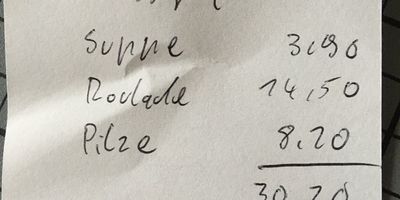 Suppe 3,90
Roulade 14,50
Pilze 8,20
30,20